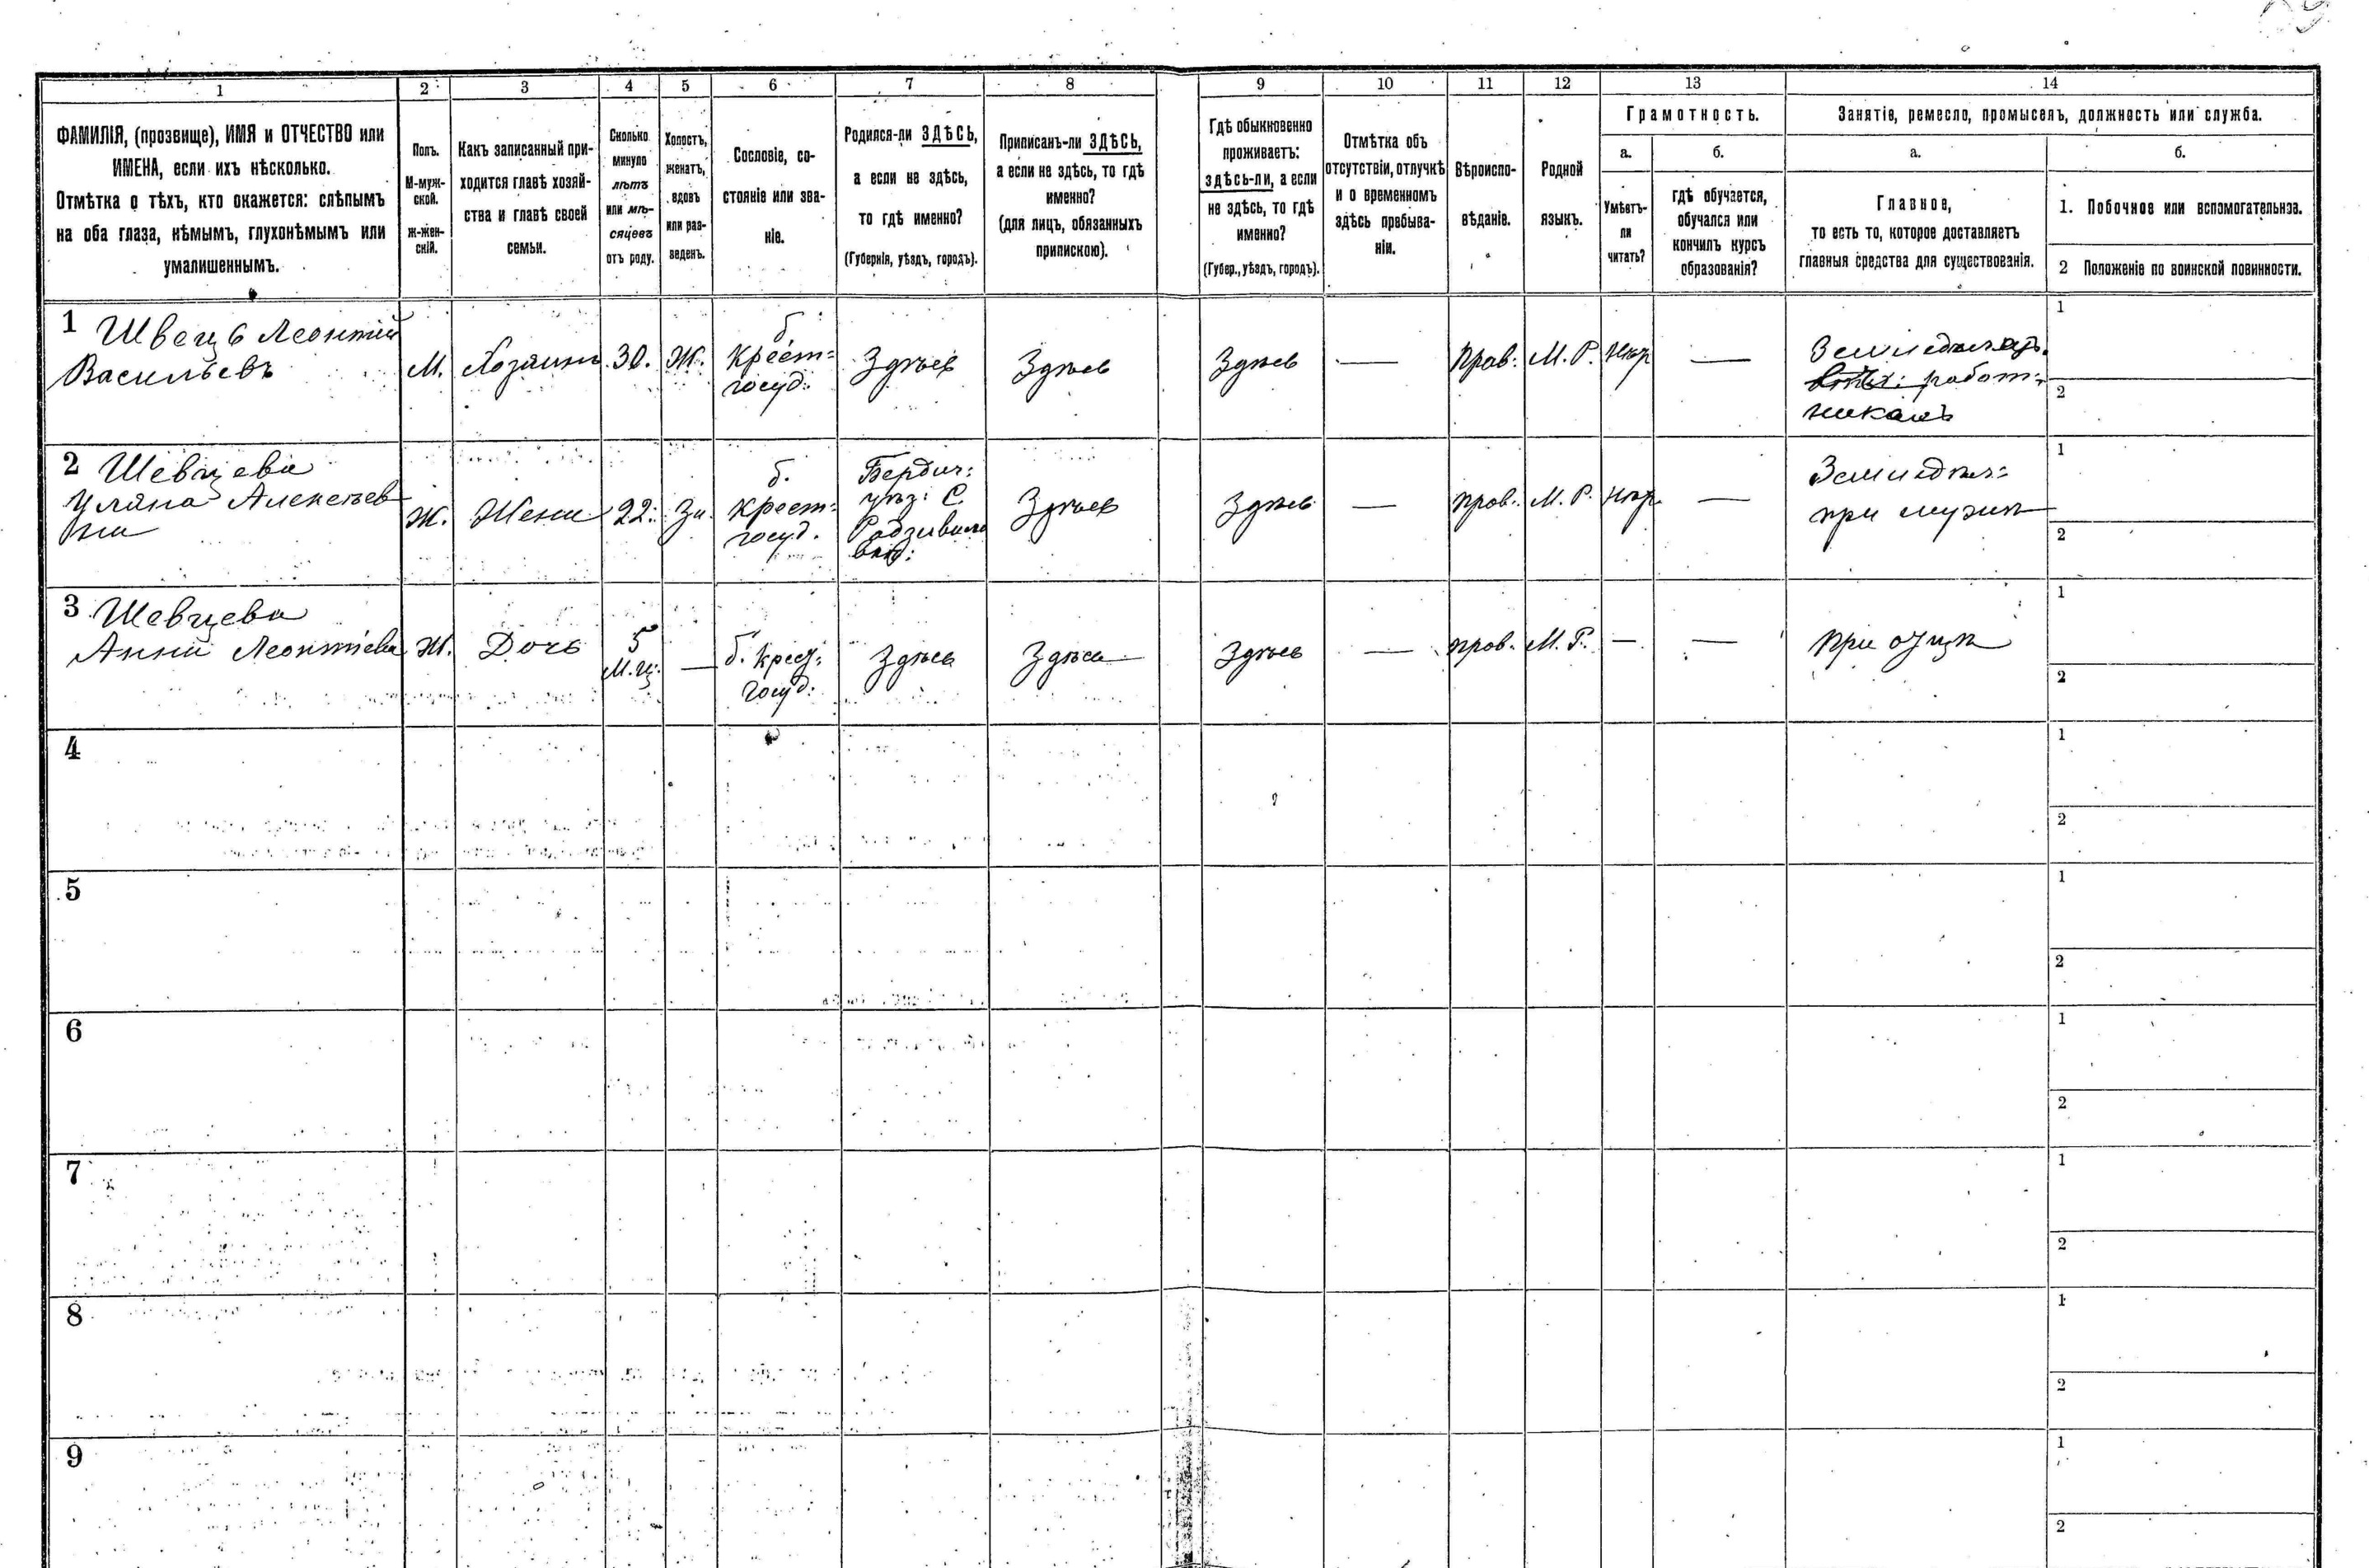 1
2
3
4
5
6
7
8
9
10
11
12
13
14
ФАМИЛІЯ, (прозвище), ИМЯ и ОТЧЕСТВО или
ИМЕНА, если ихъ нѣсколько.
Отмѣтка о тѣхъ, кто окажется: слѣпымъ
на оба глаза, нѣмымъ, глухонѣмымъ или
умалишеннымъ.
Полъ.
М-муж-
ской.
Ж-жен-
скій.
Какъ записанный при-
ходится главѣ хозяй-
ства и главѣ своей
семьи.
Сколько
минуло
лѣтъ
или мѣ-
сяцевъ
отъ роду.
Холостъ,
женатъ,
вдовъ
или раз-
веденъ.
Сословіе, со-
стояніе или зва-
ніе.
Родился-ли ЗДѢСЬ,
а если не здѣсь,
то гдѣ именно?
(Губернія, уѣздъ, городъ).
Приписанъ-ли ЗДѢСЬ,
а если не здѣсь, то гдѣ
именно?
(для лицъ, обязанныхъ
припискою).
Гдѣ обыкновенно
проживаетъ:
здѣсь-ли, а если
не здѣсь, то гдѣ
именно?
(Губер., уѣздъ, городъ).
Отмѣтка объ
отсутствіи, отлучкѣ
и о временномъ
здѣсь пребыва-
ніи.
Вѣроиспо-
вѣданіе.
Родной
языкъ.
Грамотность.
а.
Умѣетъ-
ли
читать?
б.
гдѣ обучается,
обучался или
кончилъ курсъ
образованія?
Занятіе, ремесло, промыселъ, должность или служба.
а.
Главное,
то есть то, которое доставляетъ
главныя средства для существованія.
б.
1. Побочное или вспомогательное.
2 Положеніе по воинской повинности.
1 Швець Леонтій
Васильевъ
М.
Хозяинъ
30.
Ж.
б.
Крест:
госуд:
Здѣсь
Здѣсь
Здѣсь
—
Прав:
М. Р.
Нѣт
—
работ:
никомъ
1
2
2 Шевцева
Уляна Алексѣев
на
Ж.
Жена
22:
За
б.
Крест:
госуд.
Бердич:
уѣз: С.
Здѣсь
Здѣсь
—
прав:
М. Р.
Нѣт
—
Землѣдѣл:
при мужѣ
1
2
3 Шевцева
Анна Леонтіева
Ж.
Дочь
5
М.ц:
—
б. Крест:
госуд:
Здѣсь
Здѣсь
Здѣсь
—
прав.
М. Р.
—
—
при отцѣ
1
2
4
1
2
5
1
2
6
1
2
7
1
2
8
1
2
9
1
2